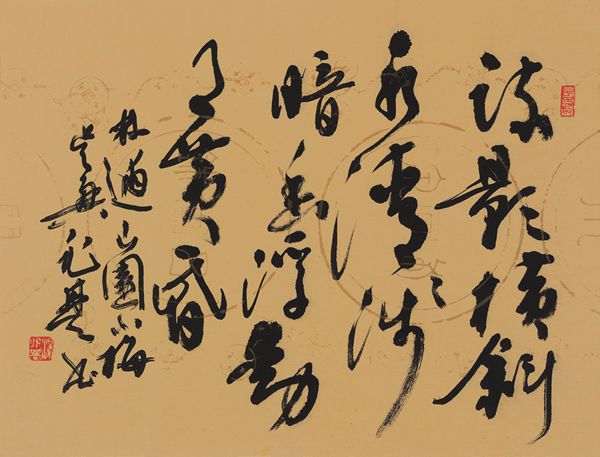 疎影横斜
水清淺
暗香浮動
月黄昏
林逋山園小梅
書